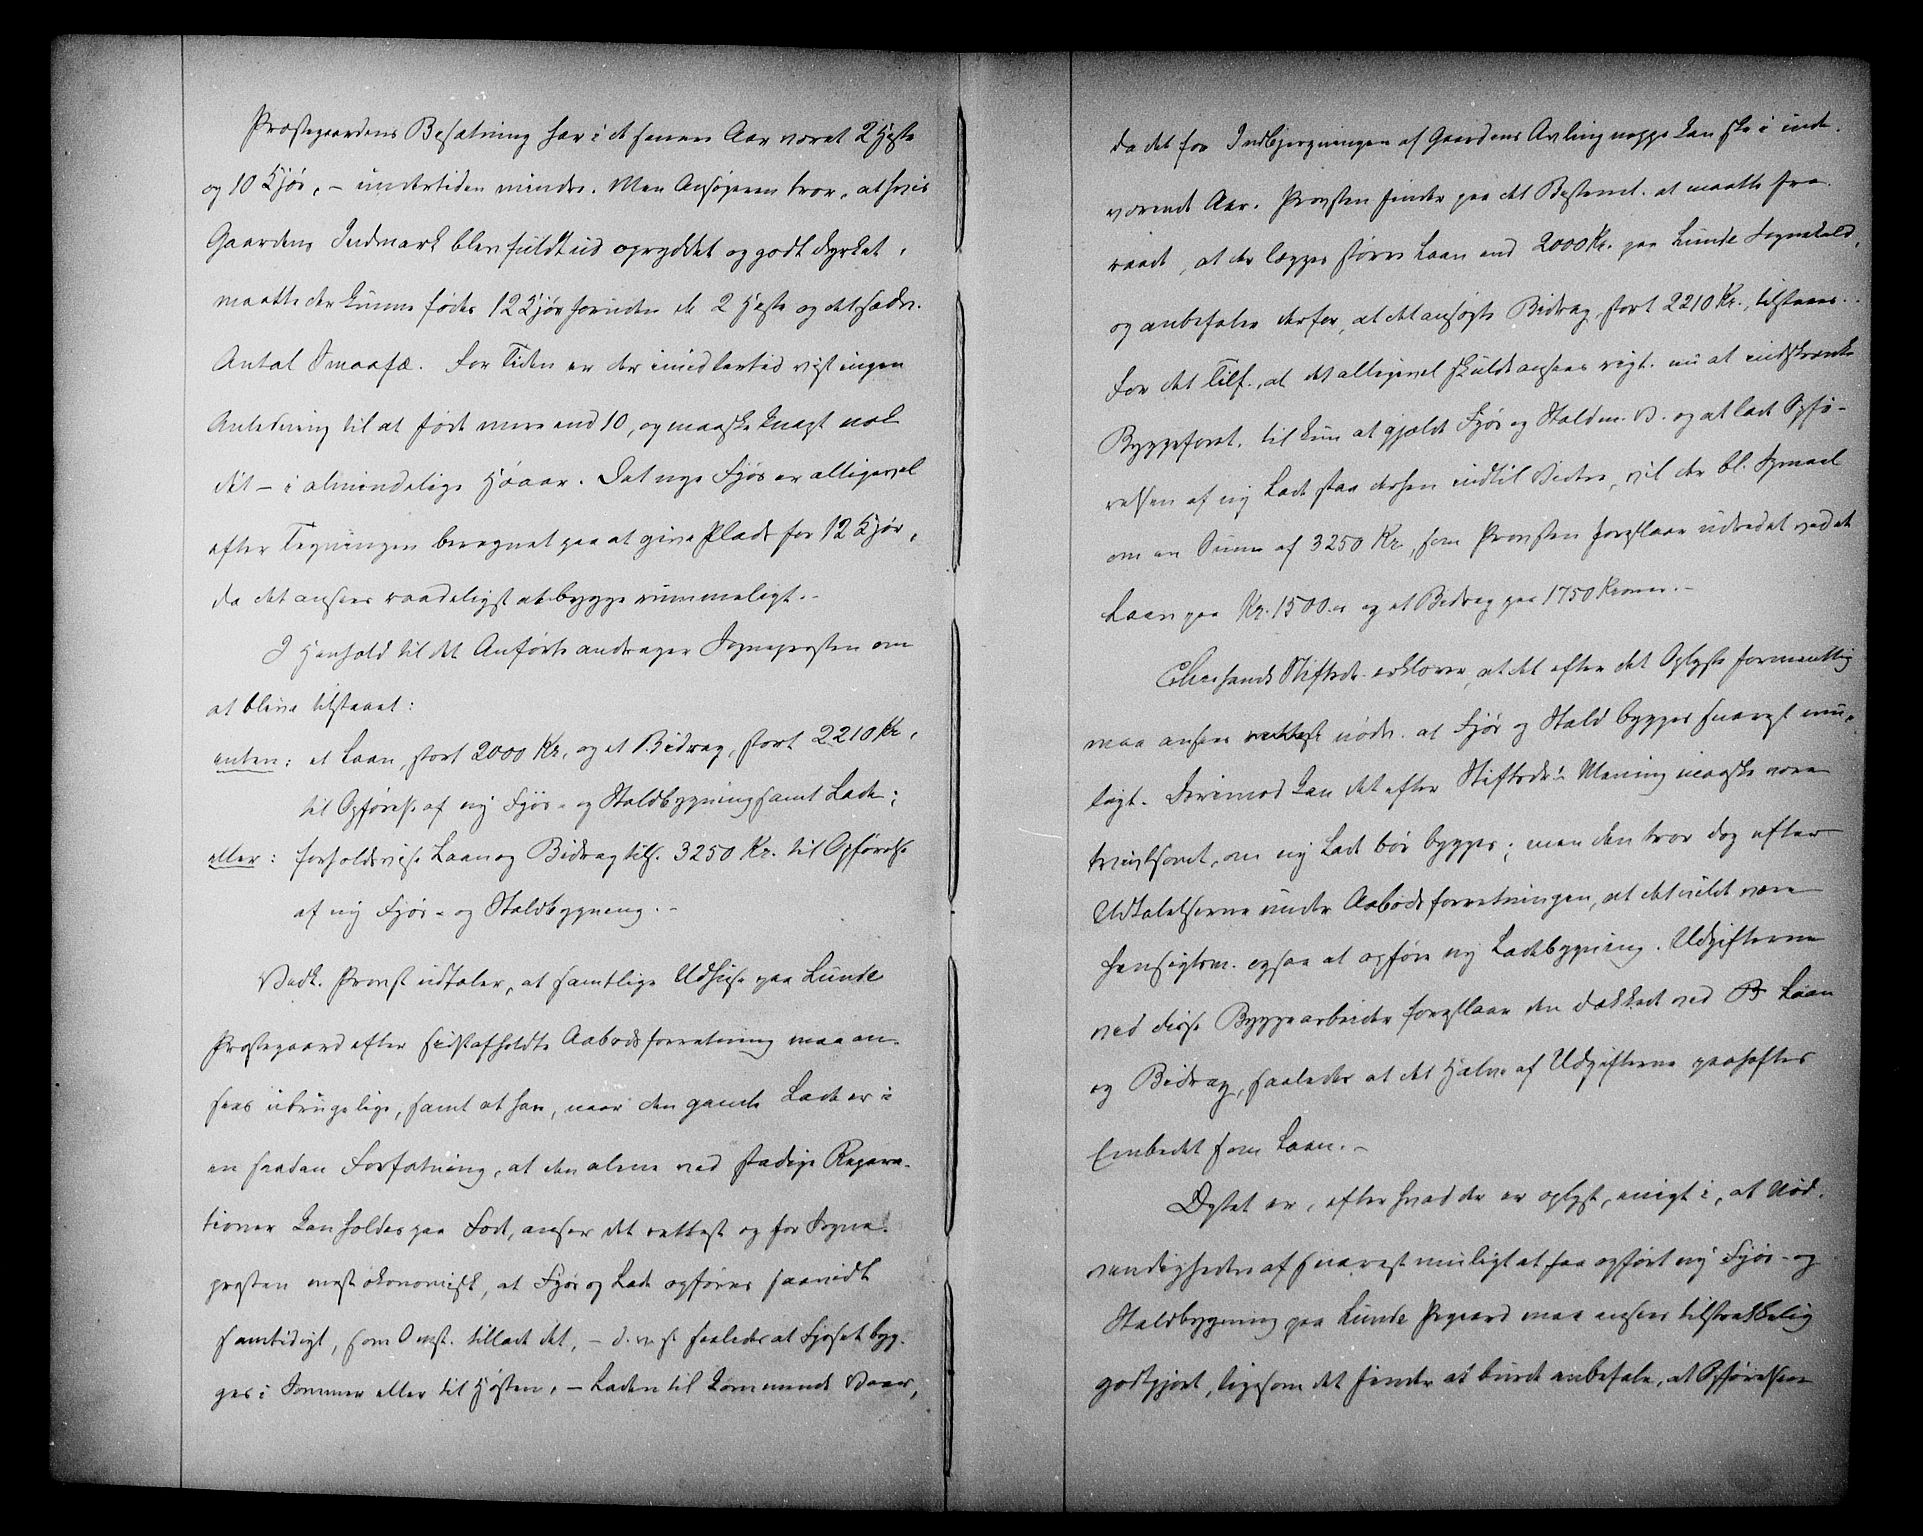 Præstegaardens Besætning har i de senere Aar været 2 Heste
og 10 Kjør, – undertiden mindre. Men Ansøgeren tror, at hvis
Gaardens Indmark blev fuldt ud opryddet og godt dyrket,
maatte der kunne fødes 12 Kjør foruden de 2 Heste og det sædv.
Antal Smaafæ. For Tiden er der imidlertid vist ingen
Anledning til at føde mere end 10, og maaske knapt nok
det – i almindelige Høaar. Det nye Fjøs er alligevel
efter Tegningen beregnet paa at give Plads for 12 Kjør,
da det ansees raadeligst at bygge rummeligt. –
I Henhold til det Anførte andrager Sognepresten om
at blive tilstaaet:
enten: et Laan, stort 2000 Kr. og et Bidrag, stort 2210 Kr.,
til Opførelse af ny Fjøs- og Staldbygning samt Lade;
eller: forholdsvise Laan og Bidrag tils. 3250 Kr. til Opførelse
af ny Fjøs- og Staldbygning. –
Vedk. Provst udtaler, at samtlige Udhuse paa Lunde
Præstegaard efter sidstafholdte Aabodsforretning maa an-
sees ubrugelige, samt at han, naar den gamle Lade er i
en saadan Forfatning, at den alene ved stadige Repara-
tioner kan holdes paa Fod, anser det rettest og for Sogne-
presten mest økonomisk, at Fjøs og Lade opføres saavidt
samtidigt, som Omst. tillade det, – d. v. s. saaledes at Fjøset byg-
ges i Sommer eller til Høsten, – Laden til kommende Vaar,
da det for Indbjergningen af Gaardens Avling neppe kan ske i inde-
værende Aar. Provsten finder paa det Bestemt. at maatte fra-
raade, at der lægges større Laan end 2000 Kr. paa Lunde Sognekald,
og anbefaler derfor, at det ansøgte Bidrag, stort 2210 Kr., tilstaaes.
For det Tilf., at det alligevel skulde ansees rigt. nu at indskrænke
Byggeforet. til kun at gjælde Fjøs og Stald m. V. og at lade Opfø-
relsen af ny Lade staa derhen indtil Videre, vil der bl. Spmaal
om en Sum af 3250 Kr., som Provsten foreslaar udredet ved et
Laan paa Kr. 1500 og et Bidrag paa 1750 Kroner. –
Chr.sands Stiftsdir. erklærer, at det efter det Oplyste formentlig
maa ansees nødv. at Fjøs og Stald bygges snarest mu-
ligt. Derimod kan det efter Stiftsdir.s Mening maaske være
tvivlsomt, om ny Lade bør bygges; men den tror dog efter
Udtalelserne under Aabodsforretningen, at det vilde være
hensigtsm. ogsaa at opføre ny Ladebygning. Udgifterne
ved disse Byggearbeider foreslaar den dækket ved Laan
og Bidrag, saaledes at det Halve af Udgifterne paaheftes
Embedet som Laan. –
Dptet er, efter hvad der er oplyst, enigt i, at Nød-
vendigheden af snarest muligt at faa opført ny Fjøs- og
Staldbygning paa Lunde Prgaard maa ansees tilstrækkelig
godtgjort, ligesom det finder at burde anbefale, at Opførelsen